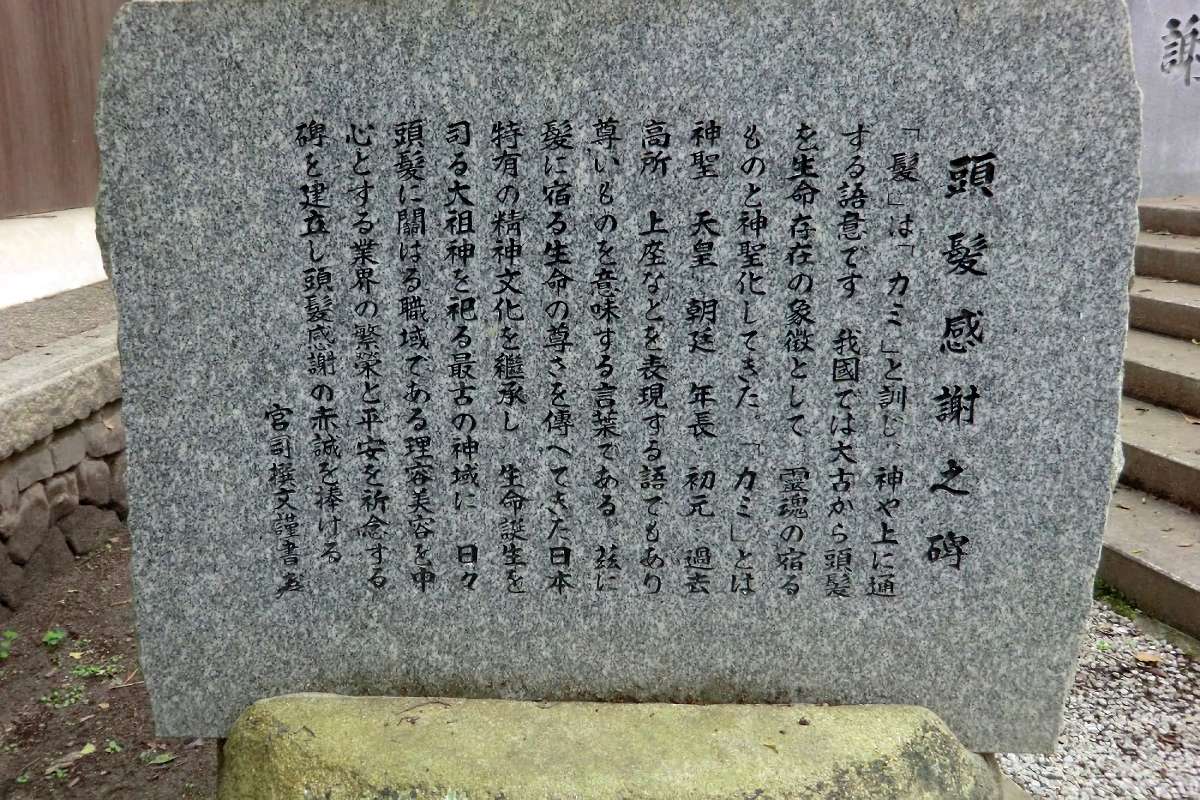 頭髪感謝之碑
「髪」は「カミ」と訓じ、神や上に通
する語意です 我國では太古から頭髪
を生命存在の象徴として 霊魂の宿る
ものと神聖化してきた。「カミ」とは
神聖 天皇 朝廷 年長 初元 過去
高所 上座などを表現する語でもあり
尊いものを意味する言葉である 玆に
髪に宿る生命の尊さを傳へてきた日本
特有の精神文化を継承し 生命誕生を
司る大祖神を祀る最古の神域に 日々
頭髪に關はる職域である理容美容を中
心とする業界の繁榮と平安を祈念する
碑を建立し頭髪感謝の赤誠を捧げる
宮司撰文謹書
謝